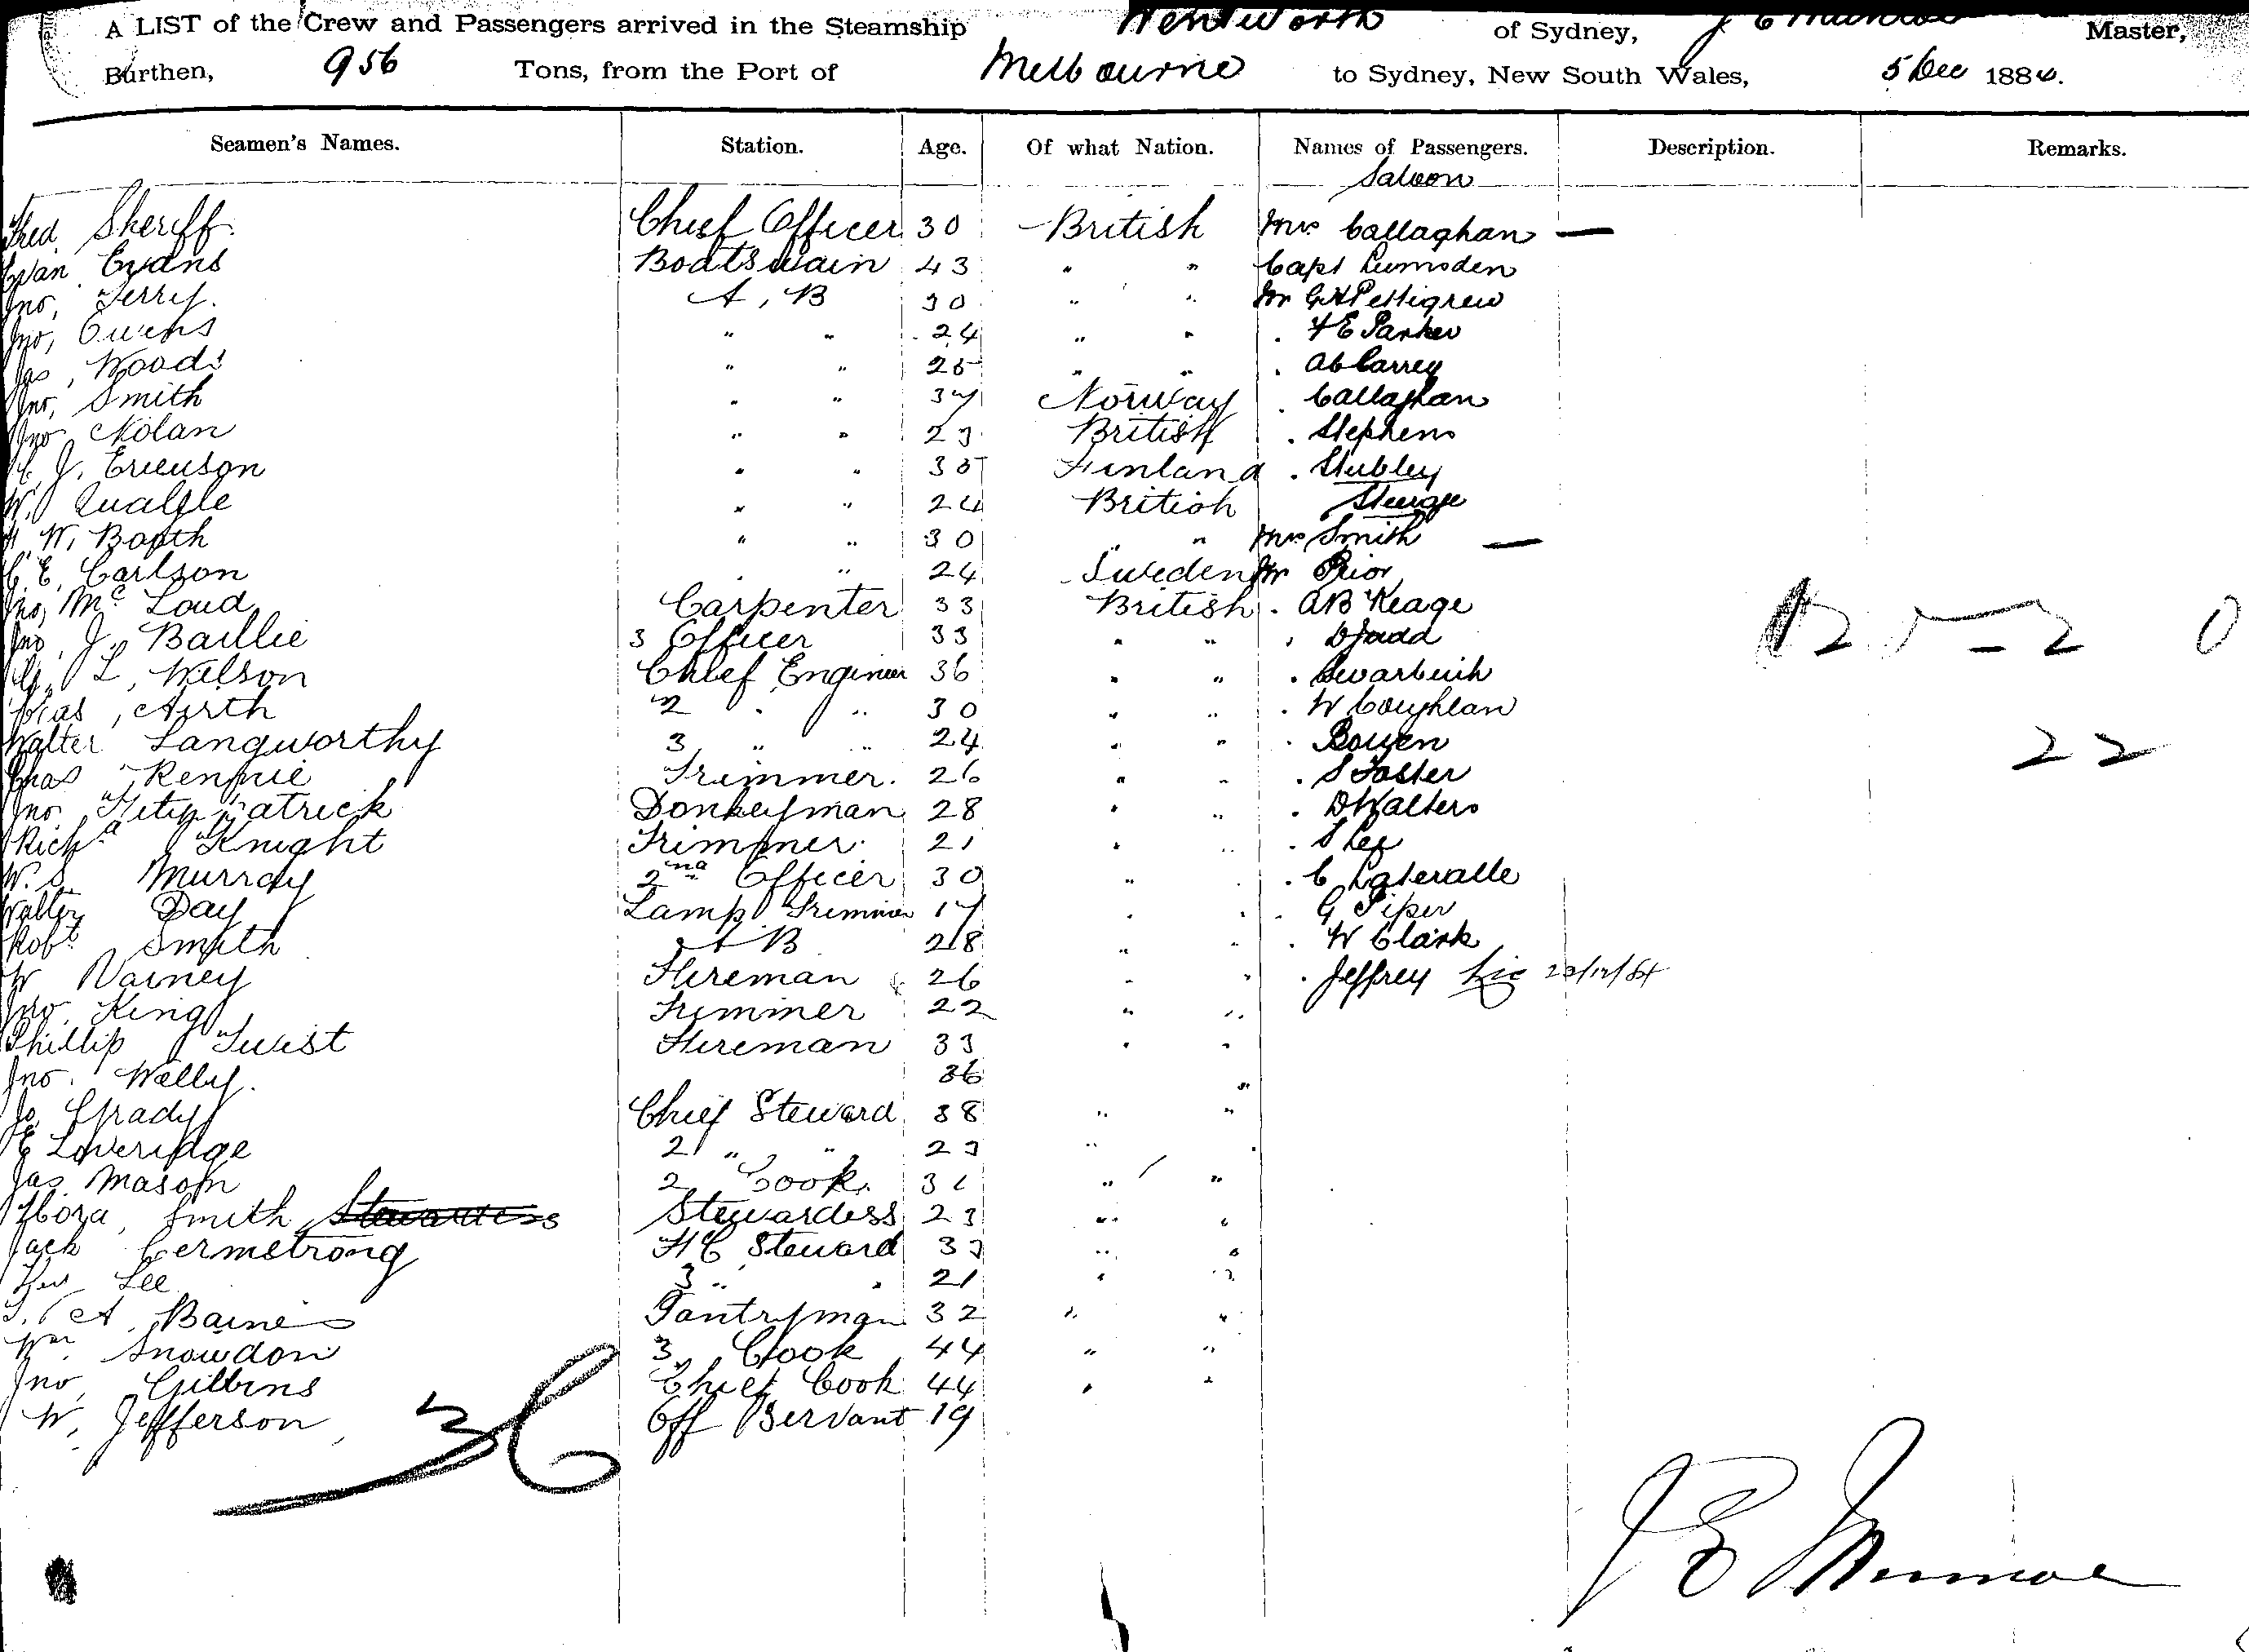 A LIST of the Crew and Passengers arrived in the Steamship Wentworth of Sydney, J E Munroe Master,
Burthen, 956 Tons, from the Port of Melbourne to Sydney, New South Wales, 5 Dec 1884.
Seamen's Names. Station. Age. Of what Nation. Names of Passengers. Description. Remarks.
Saloon
Fred Sheriff. Chief Officer 30 British Mrs Callaghan —
Evan Evans Boatswain 43 " " Capt Lumsden
Jno, Terry. A, B 30 " " Mr G H Pettigrew
Jno, Owens " " 24 " " . F E Parker
Jas, Woods " " 25 " " .
Jno, Smith " " 37 Norway . Callaghan
Jno Nolan " " 23 British . Stephens
J. " " 35 Finland . Stubley
W. " " 24 British Steerage
W, Booth " " 30 " " Mrs Smith —
C. E. Carlson " " 24 Sweden Mr Prior
Jno, Mc Loud Carpenter 33 British . A B Keage
Jno, J. Baillie 3 Officer 33 " " . D Judd
L, Wilson Chief Engineer 36 " " .
Airth 2 " " 30 " " . W Coughlan
Walter Langworthy 3 " " 24 " " . Bowen
Chas Rennie Trimmer. 26 " " . S Foster
Jno Fitzpatrick Donkeyman 28 " " . D Walters
Richd Knight Trimmer 21 " " . S Lee
W. S. Murray 2nd Officer 30 " . C
Walter Day Lamp Trimmer 17 " " . G Piper
Robt Smith A B 28 " " . W Clark
W Varney Fireman 26 " " . Jeffrey
Jno. King Trimmer 22 " "
Phillip Twist Fireman 33 " "
Jno. Welly. 36 "
Jo. Grady Chief Steward 38 " "
E Loveridge 2 " " 23 " "
Jas Mason 2 Cook. 31 " "
Smith Stewardess Stewardess 23 " "
Jack Cermstrong F C Steward 33 " "
Lee 3 " " 21 " "
A. Baines Pantryman 32 " "
Wm Snowdon 3 Cook 44 " "
Jno, Gibbins Chief Cook 44 " "
W, Jefferson Off Servant 19
22
36
J E Munroe